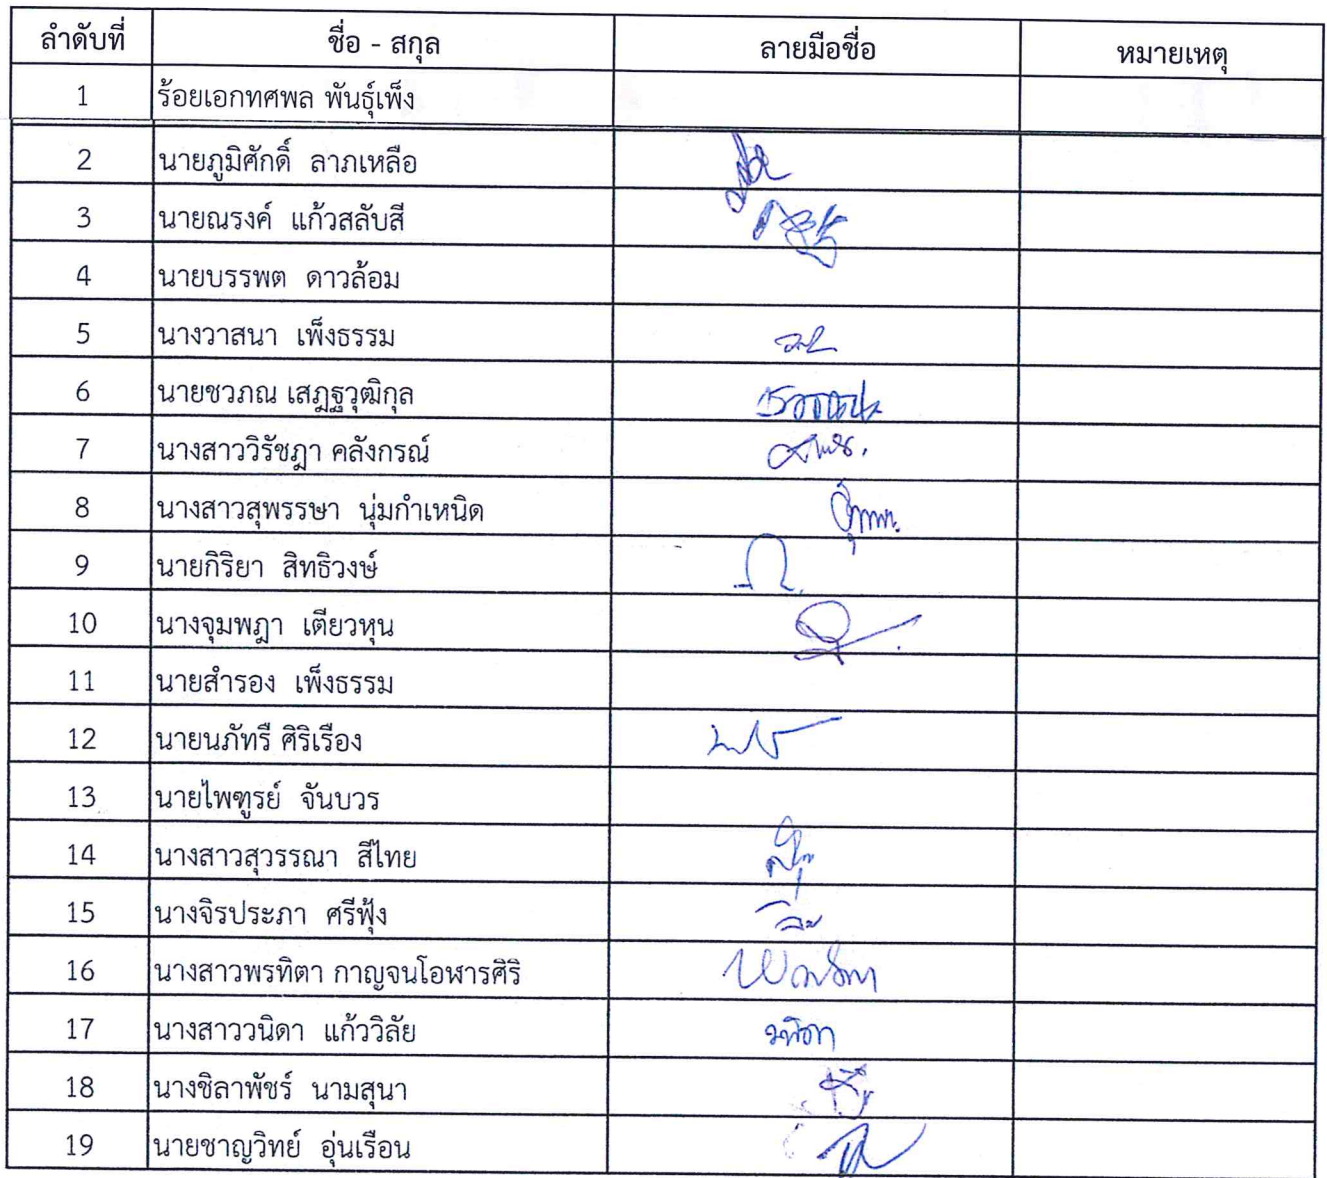 ลำดับที่ ชื่อ - สกุล ลายมือชื่อ หมายเหตุ
1 ร้อยเอกทศพล พันธุ์เพ็ง
2 นายภูมิศักดิ์ ลาภเหลือ
3 นายณรงค์ แก้วสลับสี
4 นายบรรพต ดาวล้อม
5 นางวาสนา เพ็งธรรม
6 นายชวภณ เสฎฐวุฒิกุล
7 นางสาววิรัชฎา คลังกรณ์
8 นางสาวสุพรรษา นุ่มกำเหนิด
9 นายกิริยา สิทธิวงษ์
10 นางจุมพฎา เตียวหุน
11 นายสำรอง เพ็งธรรม
12 นายนภัทรี ศิริเรือง
13 นายไพฑูรย์ จันบวร
14 นางสาวสุวรรณา สีไทย
15 นางจิรประภา ศรีฟุ้ง
16 นางสาวพรทิตา กาญจนโอฬารศิริ
17 นางสาววนิดา แก้ววิลัย วนิดา
18 นางชิลาพัชร์ นามสุนา
19 นายชาญวิทย์ อุ่นเรือน